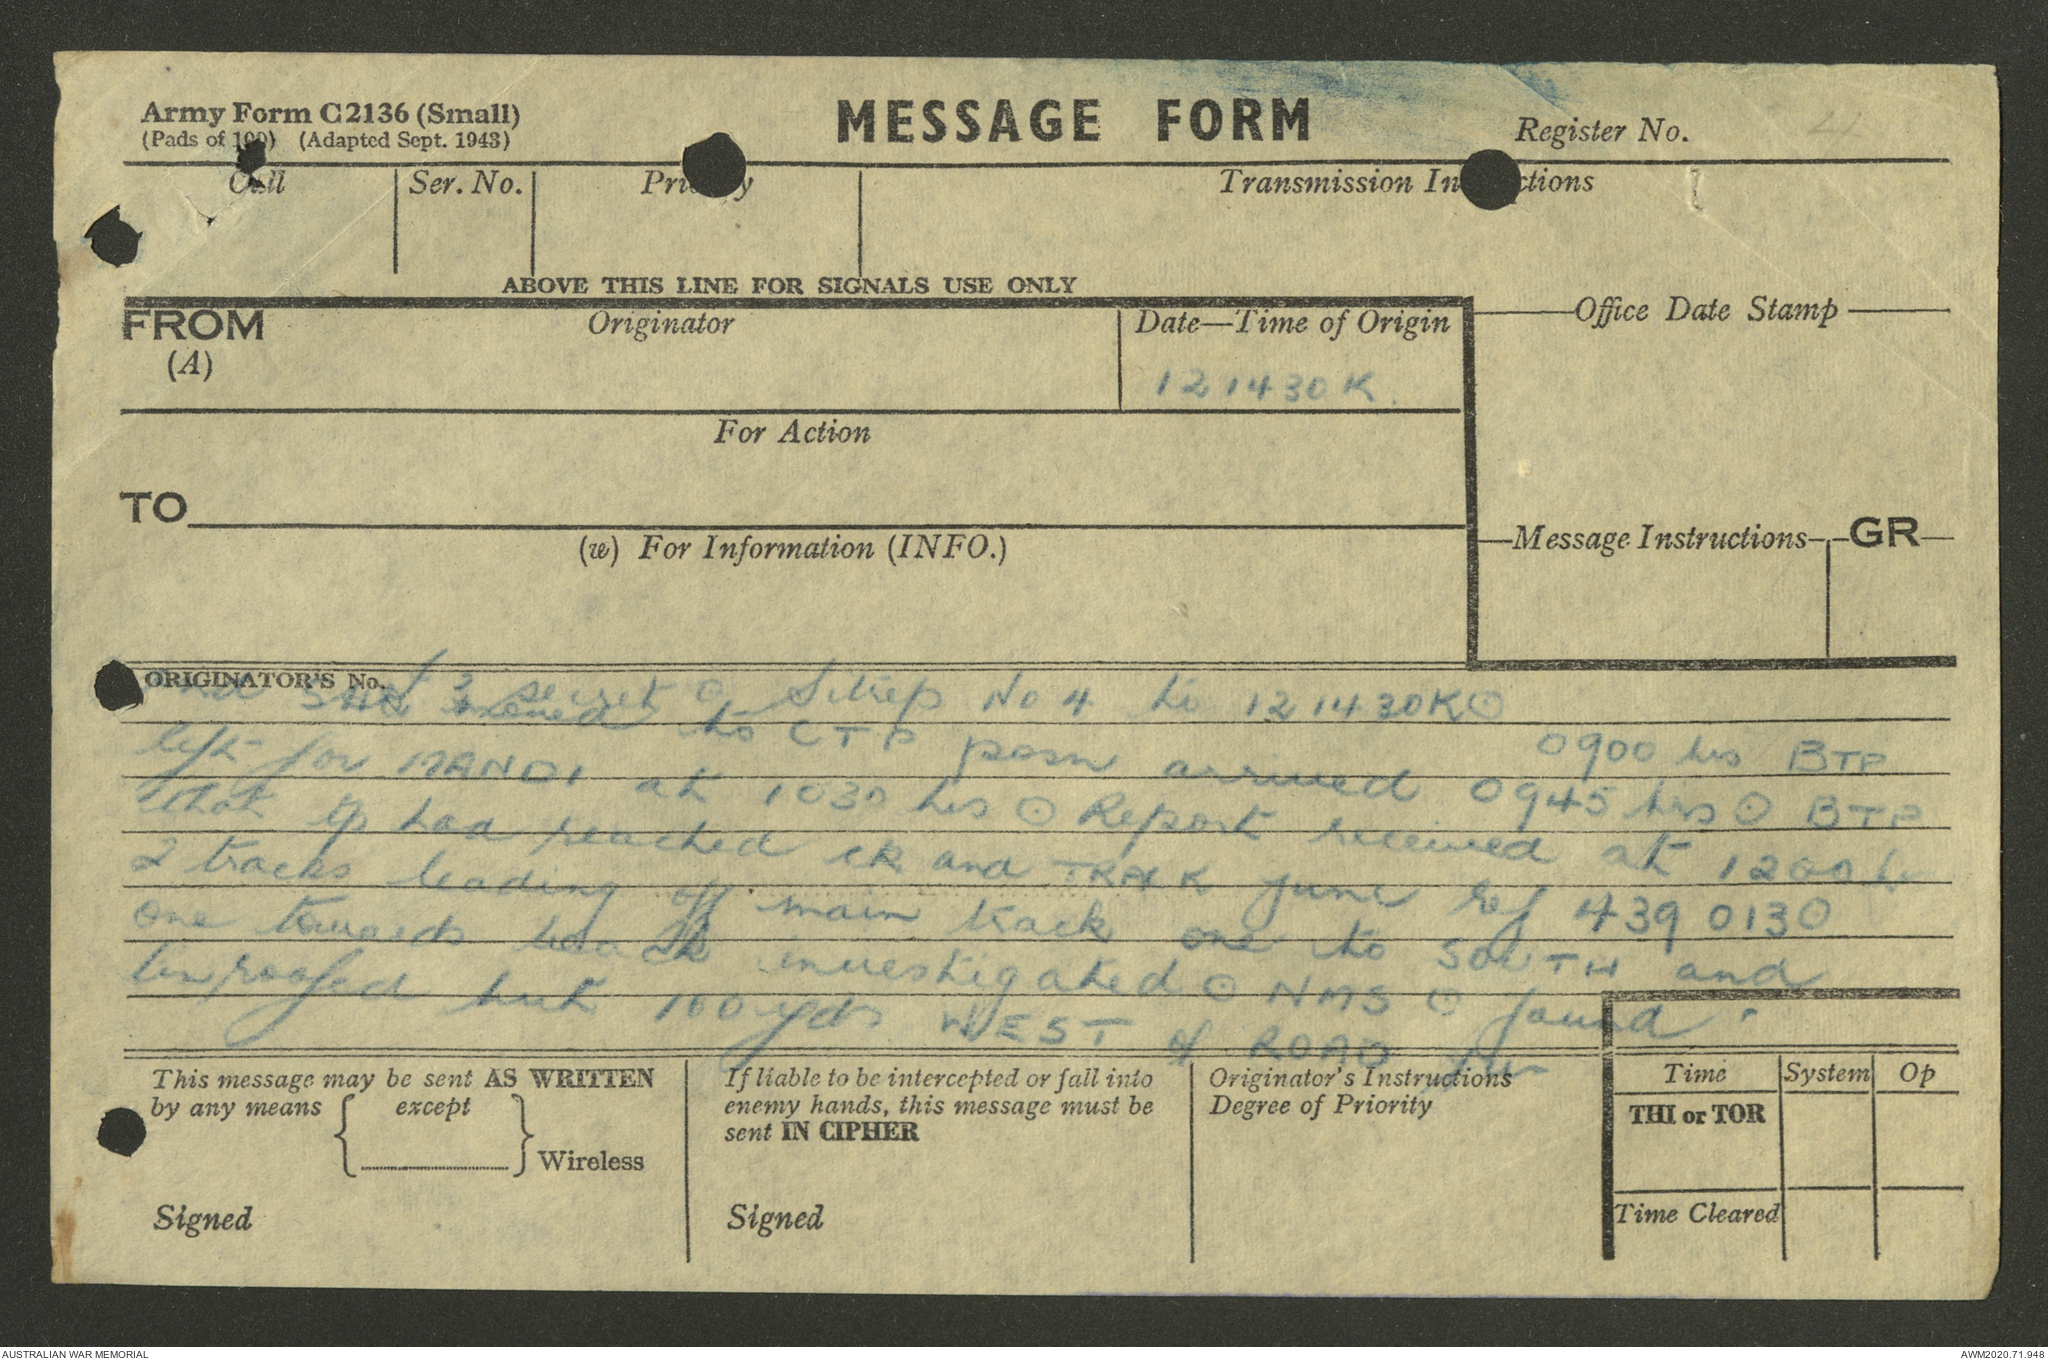 Army Form C2136 (Small)
(Pads of 100) (Adapted Sept. 1943)
MESSAGE FORM
Register No.
Call
Ser. No.
Priority
Transmission Instructions
ABOVE THIS LINE FOR SIGNALS USE ONLY
FROM
(A)
Originator
Date—Time of Origin
121430K.
Office Date Stamp
For Action
TO
(w) For Information (INFO.)
Message Instructions
GR
ORIGINATOR'S No.
secret ⊙ Sitrep No 4 to 121430K⊙
0900 hrs BTP
moved to CTP posn arrived 0945 hrs ⊙ BTP
left for MANDI at 1030 hrs ⊙ Report received at 1200 hr
that tp had reached CK and TRACK junc ref 439013⊙
2 tracks leading off main track one to SOUTH and
one towards beach investigated ⊙ NMS ⊙ found
unroofed hut 100 yds WEST of ROAD
This message may be sent AS WRITTEN
by any means except
Wireless
Signed
If liable to be intercepted or fall into
enemy hands, this message must be
sent IN CIPHER
Signed
Originator's Instructions
Degree of Priority
Time
System
Op
THI or TOR
Time Cleared
AUSTRALIAN WAR MEMORIAL
AWM2020.71.948